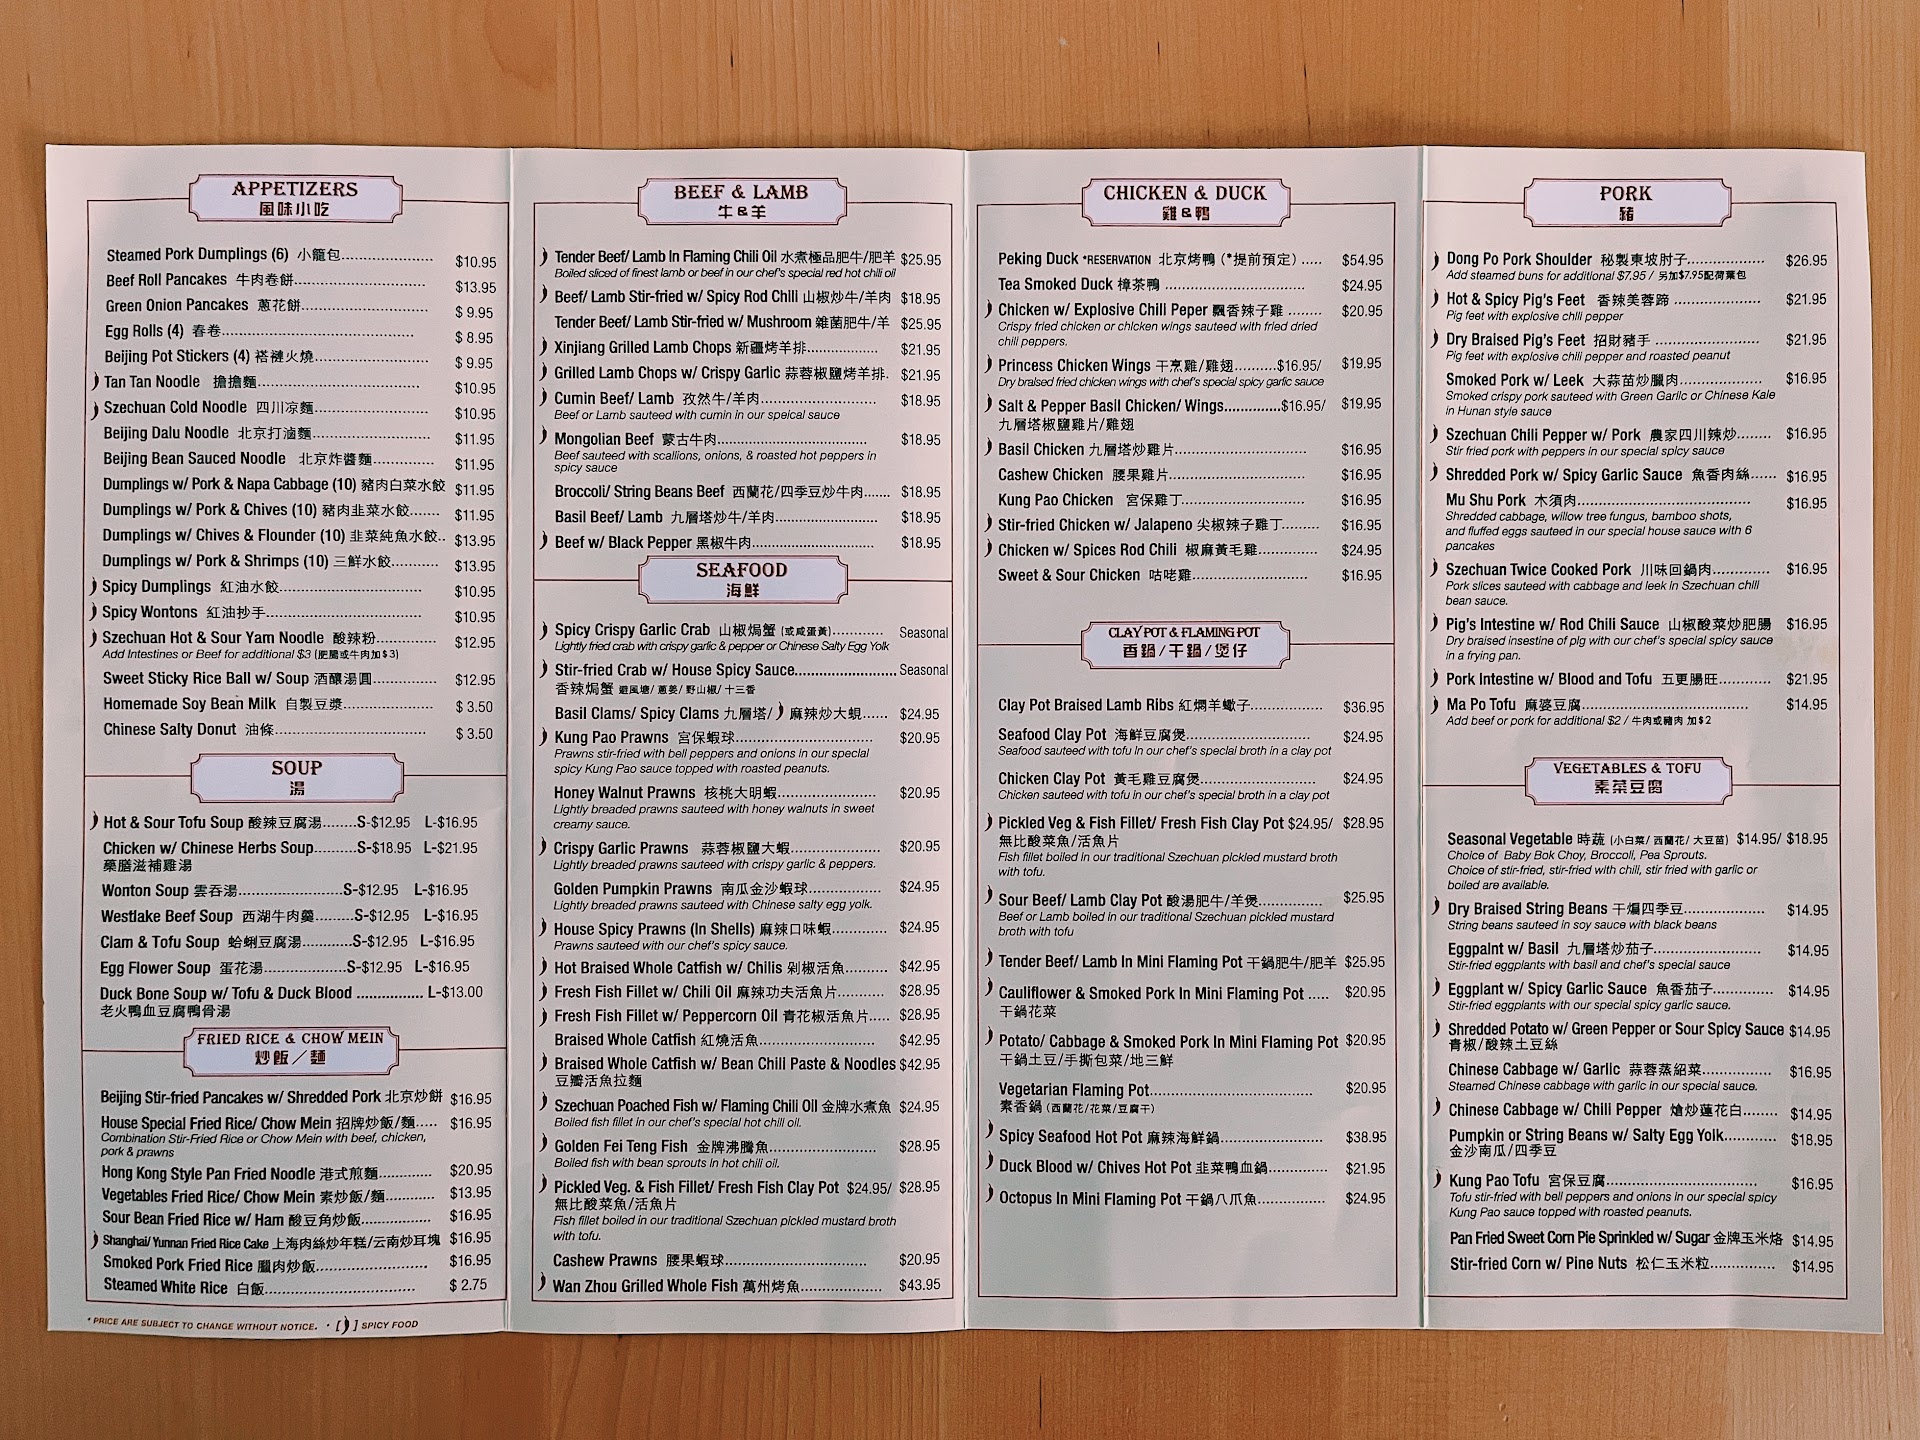 APPETIZERS
風味小吃
Steamed Pork Dumplings (6) 小籠包..................... $10.95
Beef Roll Pancakes 牛肉卷餅............................. $13.95
Green Onion Pancakes 蔥花餅............................. $ 9.95
Egg Rolls (4) 春卷............................................ $ 8.95
Beijing Pot Stickers (4) 褡褳火燒.......................... $ 9.95
Tan Tan Noodle 擔擔麵...................................... $10.95
Szechuan Cold Noodle 四川凉麵.......................... $10.95
Beijing Dalu Noodle 北京打滷麵.......................... $11.95
Beijing Bean Sauced Noodle 北京炸醬麵.............. $11.95
Dumplings w/ Pork & Napa Cabbage (10) 豬肉白菜水餃 $11.95
Dumplings w/ Pork & Chives (10) 豬肉韭菜水餃....... $11.95
Dumplings w/ Chives & Flounder (10) 韭菜純魚水餃.. $13.95
Dumplings w/ Pork & Shrimps (10) 三鮮水餃........... $13.95
Spicy Dumplings 紅油水餃................................. $10.95
Spicy Wontons 紅油抄手.................................... $10.95
Szechuan Hot & Sour Yam Noodle 酸辣粉.............. $12.95
Add Intestines or Beef for additional $3 (肥腸或牛肉加$3)
Sweet Sticky Rice Ball w/ Soup 酒釀湯圓............... $12.95
Homemade Soy Bean Milk 自製豆漿..................... $ 3.50
Chinese Salty Donut 油條................................... $ 3.50
SOUP
湯
Hot & Sour Tofu Soup 酸辣豆腐湯........S-$12.95 L-$16.95
Chicken w/ Chinese Herbs Soup..........S-$18.95 L-$21.95
藥膳滋補雞湯
Wonton Soup 雲吞湯........................S-$12.95 L-$16.95
Westlake Beef Soup 西湖牛肉羹.........S-$12.95 L-$16.95
Clam & Tofu Soup 蛤蜊豆腐湯............S-$12.95 L-$16.95
Egg Flower Soup 蛋花湯...................S-$12.95 L-$16.95
Duck Bone Soup w/ Tofu & Duck Blood ................ L-$13.00
老火鴨血豆腐鴨骨湯
FRIED RICE & CHOW MEIN
炒飯／麵
Beijing Stir-fried Pancakes w/ Shredded Pork 北京炒餅 $16.95
House Special Fried Rice/ Chow Mein 招牌炒飯/麵..... $16.95
Combination Stir-Fried Rice or Chow Mein with beef, chicken,
pork & prawns
Hong Kong Style Pan Fried Noodle 港式煎麵............ $20.95
Vegetables Fried Rice/ Chow Mein 素炒飯/麵........... $13.95
Sour Bean Fried Rice w/ Ham 酸豆角炒飯................ $16.95
Shanghai/ Yunnan Fried Rice Cake 上海肉絲炒年糕/云南炒耳塊 $16.95
Smoked Pork Fried Rice 臘肉炒飯......................... $16.95
Steamed White Rice 白飯................................... $ 2.75
* PRICE ARE SUBJECT TO CHANGE WITHOUT NOTICE. • [ ] SPICY FOOD
BEEF & LAMB
牛&羊
Tender Beef/ Lamb In Flaming Chili Oil 水煮極品肥牛/肥羊 $25.95
Boiled sliced of finest lamb or beef in our chef's special red hot chili oil
Beef/ Lamb Stir-fried w/ Spicy Rod Chili 山椒炒牛/羊肉 $18.95
Tender Beef/ Lamb Stir-fried w/ Mushroom 雜菌肥牛/羊 $25.95
Xinjiang Grilled Lamb Chops 新疆烤羊排................. $21.95
Grilled Lamb Chops w/ Crispy Garlic 蒜蓉椒鹽烤羊排. $21.95
Cumin Beef/ Lamb 孜然牛/羊肉........................... $18.95
Beef or Lamb sauteed with cumin in our speical sauce
Mongolian Beef 蒙古牛肉.................................... $18.95
Beef sauteed with scallions, onions, & roasted hot peppers in
spicy sauce
Broccoli/ String Beans Beef 西蘭花/四季豆炒牛肉....... $18.95
Basil Beef/ Lamb 九層塔炒牛/羊肉......................... $18.95
Beef w/ Black Pepper 黑椒牛肉............................. $18.95
SEAFOOD
海鮮
Spicy Crispy Garlic Crab 山椒焗蟹 (或咸蛋黃)............ Seasonal
Lightly fried crab with crispy garlic & pepper or Chinese Salty Egg Yolk
Stir-fried Crab w/ House Spicy Sauce......................... Seasonal
香辣焗蟹 避風塘/ 蔥姜/ 野山椒/ 十三香
Basil Clams/ Spicy Clams 九層塔/ 麻辣炒大蜆...... $24.95
Kung Pao Prawns 宮保蝦球................................. $20.95
Prawns stir-fried with bell peppers and onions in our special
spicy Kung Pao sauce topped with roasted peanuts.
Honey Walnut Prawns 核桃大明蝦........................ $20.95
Lightly breaded prawns sauteed with honey walnuts in sweet
creamy sauce.
Crispy Garlic Prawns 蒜蓉椒鹽大蝦..................... $20.95
Lightly breaded prawns sauteed with crispy garlic & peppers.
Golden Pumpkin Prawns 南瓜金沙蝦球.................. $24.95
Lightly breaded prawns sauteed with Chinese salty egg yolk.
House Spicy Prawns (In Shells) 麻辣口味蝦............. $24.95
Prawns sauteed with our chef's spicy sauce.
Hot Braised Whole Catfish w/ Chilis 剁椒活魚.......... $42.95
Fresh Fish Fillet w/ Chili Oil 麻辣功夫活魚片........... $28.95
Fresh Fish Fillet w/ Peppercorn Oil 青花椒活魚片..... $28.95
Braised Whole Catfish 紅燒活魚........................... $42.95
Braised Whole Catfish w/ Bean Chill Paste & Noodles $42.95
豆瓣活魚拉麵
Szechuan Poached Fish w/ Flaming Chili Oil 金牌水煮魚 $24.95
Boiled fish fillet in our chef's special hot chili oil.
Golden Fei Teng Fish 金牌沸騰魚.......................... $28.95
Boiled fish with bean sprouts in hot chili oil.
Pickled Veg. & Fish Fillet/ Fresh Fish Clay Pot $24.95/ $28.95
無比酸菜魚/活魚片
Fish fillet boiled in our traditional Szechuan pickled mustard broth
with tofu.
Cashew Prawns 腰果蝦球................................... $20.95
Wan Zhou Grilled Whole Fish 萬州烤魚.................... $43.95
CHICKEN & DUCK
雞&鴨
Peking Duck *RESERVATION 北京烤鴨 (*提前預定) ..... $54.95
Tea Smoked Duck 樟茶鴨 .................................. $24.95
Chicken w/ Explosive Chili Peper 飄香辣子雞 ........ $20.95
Crispy fried chicken or chicken wings sauteed with fried dried
chili peppers.
Princess Chicken Wings 干烹雞/雞翅..........$16.95/ $19.95
Dry braised fried chicken wings with chef's special spicy garlic sauce
Salt & Pepper Basil Chicken/ Wings.............$16.95/ $19.95
九層塔椒鹽雞片/雞翅
Basil Chicken 九層塔炒雞片................................ $16.95
Cashew Chicken 腰果雞片.................................. $16.95
Kung Pao Chicken 宮保雞丁............................... $16.95
Stir-fried Chicken w/ Jalapeno 尖椒辣子雞丁......... $16.95
Chicken w/ Spices Rod Chili 椒麻黃毛雞.............. $24.95
Sweet & Sour Chicken 咕咾雞............................ $16.95
CLAY POT & FLAMING POT
香鍋/干鍋/煲仔
Clay Pot Braised Lamb Ribs 紅燜羊蠍子................. $36.95
Seafood Clay Pot 海鮮豆腐煲.............................. $24.95
Seafood sauteed with tofu in our chef's special broth in a clay pot
Chicken Clay Pot 黃毛雞豆腐煲............................ $24.95
Chicken sauteed with tofu in our chef's special broth in a clay pot
Pickled Veg & Fish Fillet/ Fresh Fish Clay Pot $24.95/ $28.95
無比酸菜魚/活魚片
Fish fillet boiled in our traditional Szechuan pickled mustard broth
with tofu.
Sour Beef/ Lamb Clay Pot 酸湯肥牛/羊煲............... $25.95
Beef or Lamb boiled in our traditional Szechuan pickled mustard
broth with tofu
Tender Beef/ Lamb In Mini Flaming Pot 干鍋肥牛/肥羊 $25.95
Cauliflower & Smoked Pork In Mini Flaming Pot ..... $20.95
干鍋花菜
Potato/ Cabbage & Smoked Pork In Mini Flaming Pot $20.95
干鍋土豆/手撕包菜/地三鮮
Vegetarian Flaming Pot....................................... $20.95
素香鍋 (西蘭花/花菜/豆腐干)
Spicy Seafood Hot Pot 麻辣海鮮鍋........................ $38.95
Duck Blood w/ Chives Hot Pot 韭菜鴨血鍋.............. $21.95
Octopus In Mini Flaming Pot 干鍋八爪魚................ $24.95
PORK
豬
Dong Po Pork Shoulder 秘製東坡肘子................... $26.95
Add steamed buns for additional $7.95 / 另加$7.95配荷葉包
Hot & Spicy Pig's Feet 香辣美蓉蹄 ..................... $21.95
Pig feet with explosive chili pepper
Dry Braised Pig's Feet 招財豬手 ......................... $21.95
Pig feet with explosive chili pepper and roasted peanut
Smoked Pork w/ Leek 大蒜苗炒臘肉.................... $16.95
Smoked crispy pork sauteed with Green Garlic or Chinese Kale
in Hunan style sauce
Szechuan Chili Pepper w/ Pork 農家四川辣炒........ $16.95
Stir fried pork with peppers in our special spicy sauce
Shredded Pork w/ Spicy Garlic Sauce 魚香肉絲...... $16.95
Mu Shu Pork 木須肉......................................... $16.95
Shredded cabbage, willow tree fungus, bamboo shots,
and fluffed eggs sauteed in our special house sauce with 6
pancakes
Szechuan Twice Cooked Pork 川味回鍋肉.............. $16.95
Pork slices sauteed with cabbage and leek in Szechuan chili
bean sauce.
Pig's Intestine w/ Rod Chili Sauce 山椒酸菜炒肥腸 $16.95
Dry braised insestine of pig with our chef's special spicy sauce
in a frying pan.
Pork Intestine w/ Blood and Tofu 五更腸旺............ $21.95
Ma Po Tofu 麻婆豆腐........................................ $14.95
Add beef or pork for additional $2 / 牛肉或豬肉 加$2
VEGETABLES & TOFU
素菜豆腐
Seasonal Vegetable 時蔬 (小白菜/ 西蘭花/ 大豆苗) $14.95/ $18.95
Choice of Baby Bok Choy, Broccoli, Pea Sprouts.
Choice of stir-fried, stir-fried with chili, stir fried with garlic or
boiled are available.
Dry Braised String Beans 干煸四季豆.................... $14.95
String beans sauteed in soy sauce with black beans
Eggpalnt w/ Basil 九層塔炒茄子........................... $14.95
Stir-fried eggplants with basil and chef's special sauce
Eggplant w/ Spicy Garlic Sauce 魚香茄子............... $14.95
Stir-fried eggplants with our special spicy garlic sauce.
Shredded Potato w/ Green Pepper or Sour Spicy Sauce $14.95
青椒/酸辣土豆絲
Chinese Cabbage w/ Garlic 蒜蓉蒸紹菜................. $16.95
Steamed Chinese cabbage with garlic in our special sauce.
Chinese Cabbage w/ Chili Pepper 熗炒蓮花白........ $14.95
Pumpkin or String Beans w/ Salty Egg Yolk............ $18.95
金沙南瓜/四季豆
Kung Pao Tofu 宮保豆腐.................................... $16.95
Tofu stir-fried with bell peppers and onions in our special spicy
Kung Pao sauce topped with roasted peanuts.
Pan Fried Sweet Corn Pie Sprinkled w/ Sugar 金牌玉米烙 $14.95
Stir-fried Corn w/ Pine Nuts 松仁玉米粒................ $14.95